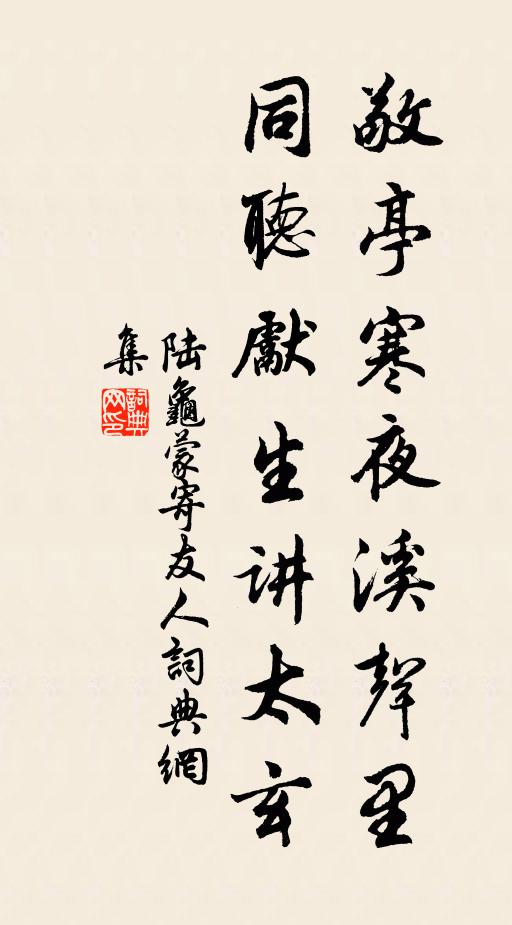 敬亭寒夜溪聲里
同聽獻生讲太玄
陆龜蒙寄友人詞典網
集
詞典
网印